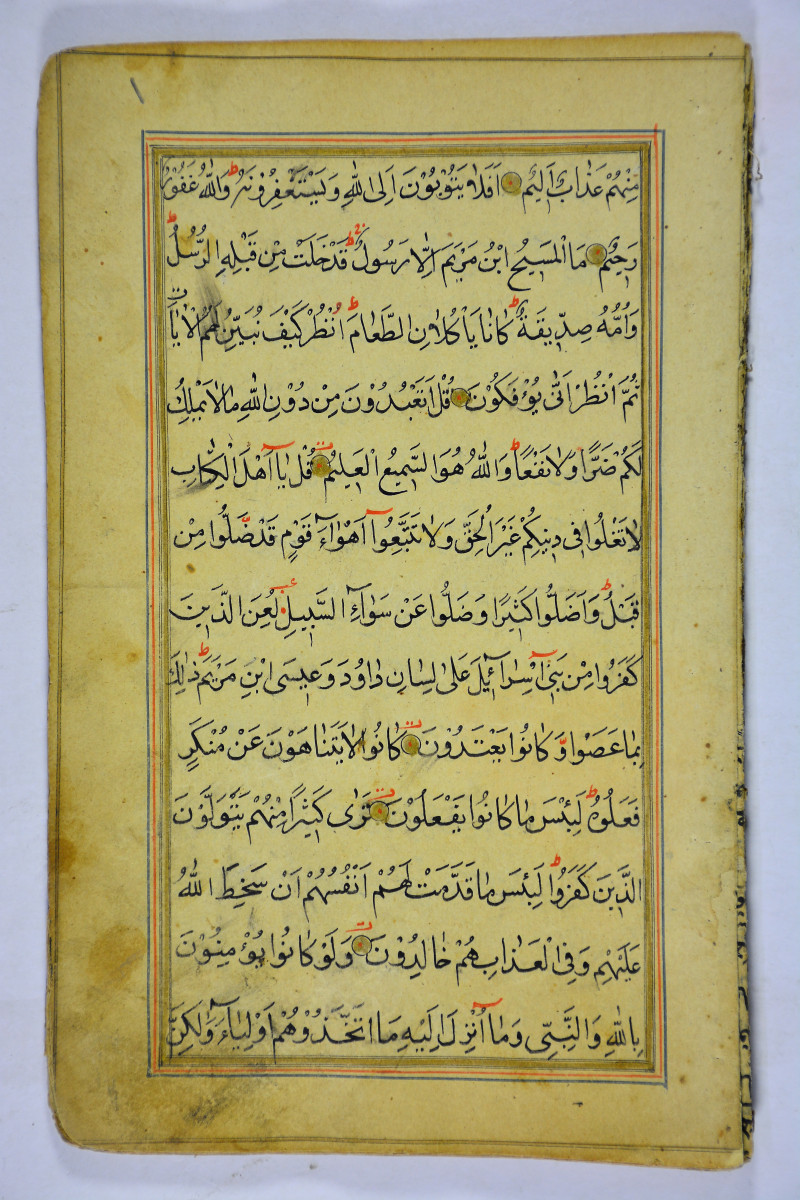 ١
مِنْهُمْ عَذَابٌ اَلِيمٌ اَفَلَا يَتُوبُوْنَ اِلَى اللّٰهِ وَيَسْتَغْفِرُوْنَهُ ط وَاللّٰهُ غَفُوْرٌ
رَحِيْمٌ مَا الْمَسِيحُ ابْنُ مَرْيَمَ اِلَّا رَسُولٌ ج قَدْ خَلَتْ مِنْ قَبْلِهِ الرُّسُلُ ط
وَاُمُّهُ صِدِّيقَةٌ ط كَانَا يَاْكُلَانِ الطَّعَامَ ط اُنْظُرْ كَيْفَ نُبَيِّنُ لَهُمُ الْاٰيَاتِ
ثُمَّ انْظُرْ اَنّٰى يُؤْفَكُوْنَ قُلْ اَتَعْبُدُوْنَ مِنْ دُوْنِ اللّٰهِ مَا لَا يَمْلِكُ
لَكُمْ ضَرًّا وَلَا نَفْعًا ط وَاللّٰهُ هُوَ السَّمِيعُ الْعَلِيمُ قُلْ يَا اَهْلَ الْكِتَابِ
لَا تَغْلُوا فِى دِينِكُمْ غَيْرَ الْحَقِّ وَلَا تَتَّبِعُوا اَهْوَاءَ قَوْمٍ قَدْ ضَلُّوا مِنْ
قَبْلُ ط وَاَضَلُّوا كَثِيرًا وَضَلُّوا عَنْ سَوَاءِ السَّبِيلِ لُعِنَ الَّذِينَ
كَفَرُوا مِنْ بَنِى اِسْرَائِيلَ عَلٰى لِسَانِ دَاوُدَ وَعِيسَى ابْنِ مَرْيَمَ ط ذٰلِكَ
بِمَا عَصَوْا وَكَانُوا يَعْتَدُوْنَ كَانُوا لَا يَتَنَاهَوْنَ عَنْ مُنْكَرٍ
فَعَلُوهُ ط لَبِئْسَ مَا كَانُوا يَفْعَلُوْنَ تَرٰى كَثِيرًا مِنْهُمْ يَتَوَلَّوْنَ
الَّذِينَ كَفَرُوا ط لَبِئْسَ مَا قَدَّمَتْ لَهُمْ اَنْفُسُهُمْ اَنْ سَخِطَ اللّٰهُ
عَلَيْهِمْ وَفِى الْعَذَابِ هُمْ خَالِدُوْنَ وَلَوْ كَانُوا يُؤْمِنُوْنَ
بِاللّٰهِ وَالنَّبِىِّ وَمَا اُنْزِلَ اِلَيْهِ مَا اتَّخَذُوْهُمْ اَوْلِيَاءَ وَلٰكِنَّ